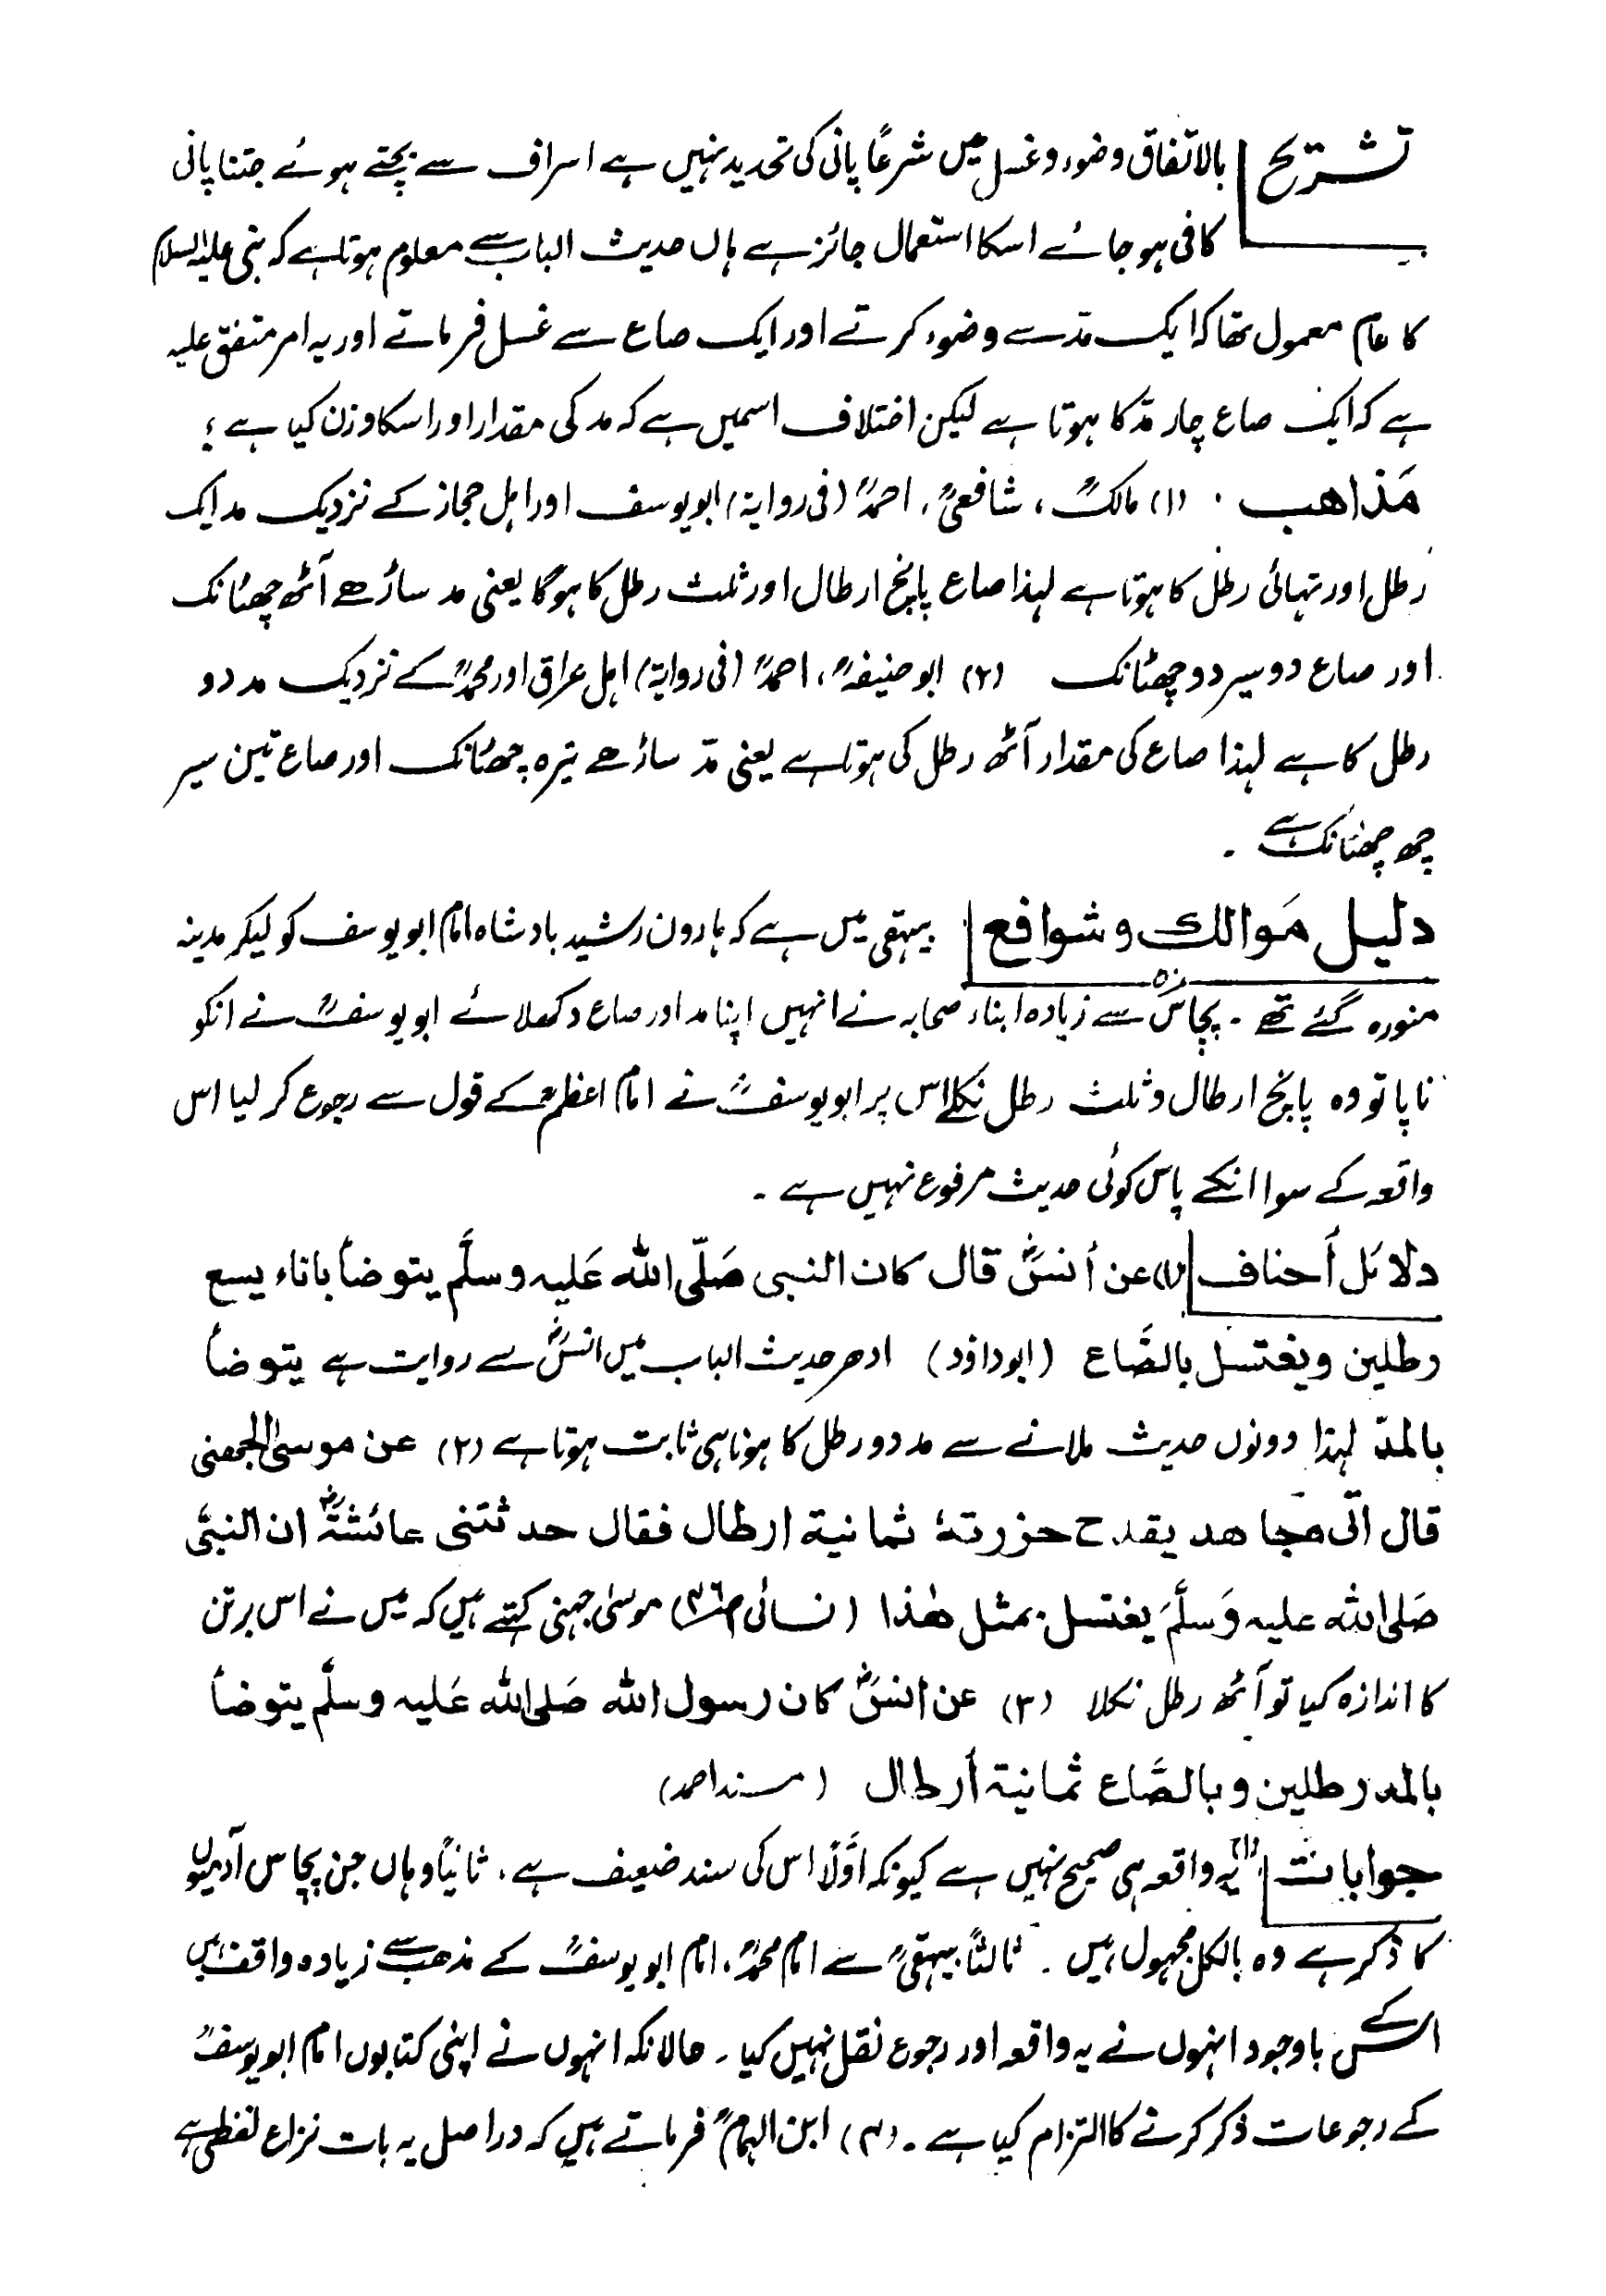 تشریح بالاتفاق وضوء وغسل میں شرعًا پانی کی تحدید نہیں ہے اسراف سے بچتے ہوئے جتنا پانی
کافی ہو جائے اسکا استعمال جائز ہے ہاں حدیث الباب سے معلوم ہوتا ہے کہ نبی علیہ السلام
کا عام معمول تھا کہ ایک مدّ سے وضوء کرتے اور ایک صاع سے غسل فرماتے اور یہ امر متفق علیہ
ہے کہ ایک صاع چار مدّ کا ہوتا ہے لیکن اختلاف اسمیں ہے کہ مد کی مقدار اور اسکا وزن کیا ہے ؛
مَذاهب ۰ (۱) مالکؒ ، شافعیؒ ، احمدؒ (فی روایۃ) ابو یوسف اور اہل حجاز کے نزدیک مد ایک
رطل اور تہائی رطل کا ہوتا ہے لہذا صاع پانچ ارطال اور ثلث رطل کا ہوگا یعنی مد ساڑھے آٹھ چھٹانک
اور صاع دو سیر دو چھٹانک (۲) ابو حنیفہؒ ، احمدؒ (فی روایۃ) اہل عراق اور محمدؒ کے نزدیک مد دو
رطل کا ہے لہذا صاع کی مقدار آٹھ رطل کی ہوتا ہے یعنی مدّ ساڑھے تیرہ چھٹانک اور صاع تین سیر
چھ چھٹانک ہے ۔
دلیل مَوالك و شوافع بیہقی میں ہے کہ ہارون رشید بادشاہ امام ابو یوسف کو لیکر مدینہ
منورہ گئے تھے ۔ پچاس سے زیادہ ابناء صحابہ نے انہیں اپنا مد اور صاع دکھلائے ابو یوسفؒ نے انکو
ناپا تو وہ پانچ ارطال و ثلث رطل نکلے اس پر ابو یوسفؒ نے امام اعظمؒ کے قول سے رجوع کر لیا اس
واقعہ کے سوا انکے پاس کوئی حدیث مرفوع نہیں ہے ۔
دلائل أحناف (۱) عن أنسؓ قال كان النبی صَلّی اللّٰه عَلیه وسلَّم یتوضأ باناء یسع
رطلین ویغتسل بالصَّاع (ابوداؤد) ادھر حدیث الباب میں انسؓ سے روایت ہے یتوضأ
بالمدّ لہذا دونوں حدیث ملانے سے مد دو رطل کا ہونا ہی ثابت ہوتا ہے (۲) عن موسیٰ الجهنی
قال اتی مجاهد بقدح حزرتهٗ ثمانیة ارطال فقال حدثتنی عائشةؓ ان النبیَّ
صَلی اللّٰه علیه وَسلَّمَ یغتسل بمثل هٰذا (نسائی ص۴۶) موسیٰ جہنی کہتے ہیں کہ میں نے اس برتن
کا اندازہ کیا تو آٹھ رطل نکلا (۳) عن انسؓ كان رسول اللّٰه صَلی اللّٰه عَلیه وسلَّم یتوضأ
بالمد رطلین وبالصَّاع ثمانیة أرطال (مسند احمد)
جوابات (۱) یہ واقعہ ہی صحیح نہیں ہے کیونکہ اوَّلًا اس کی سند ضعیف ہے ، ثانیًا وہاں جن پچاس آدمیوں
کا ذکر ہے وہ بالکل مجہول ہیں ۔ ثالثًا بیہقیؒ سے امام محمدؒ ، امام ابو یوسفؒ کے مذھب سے زیادہ واقف ہیں
اسکے باوجود انہوں نے یہ واقعہ اور رجوع نقل نہیں کیا ۔ حالانکہ انہوں نے اپنی کتابوں امام ابو یوسفؒ
کے رجوعات ذکر کرنے کا التزام کیا ہے ۔ (۲) ابن الہمامؒ فرماتے ہیں کہ دراصل یہ بات نزاع لفظی ہے